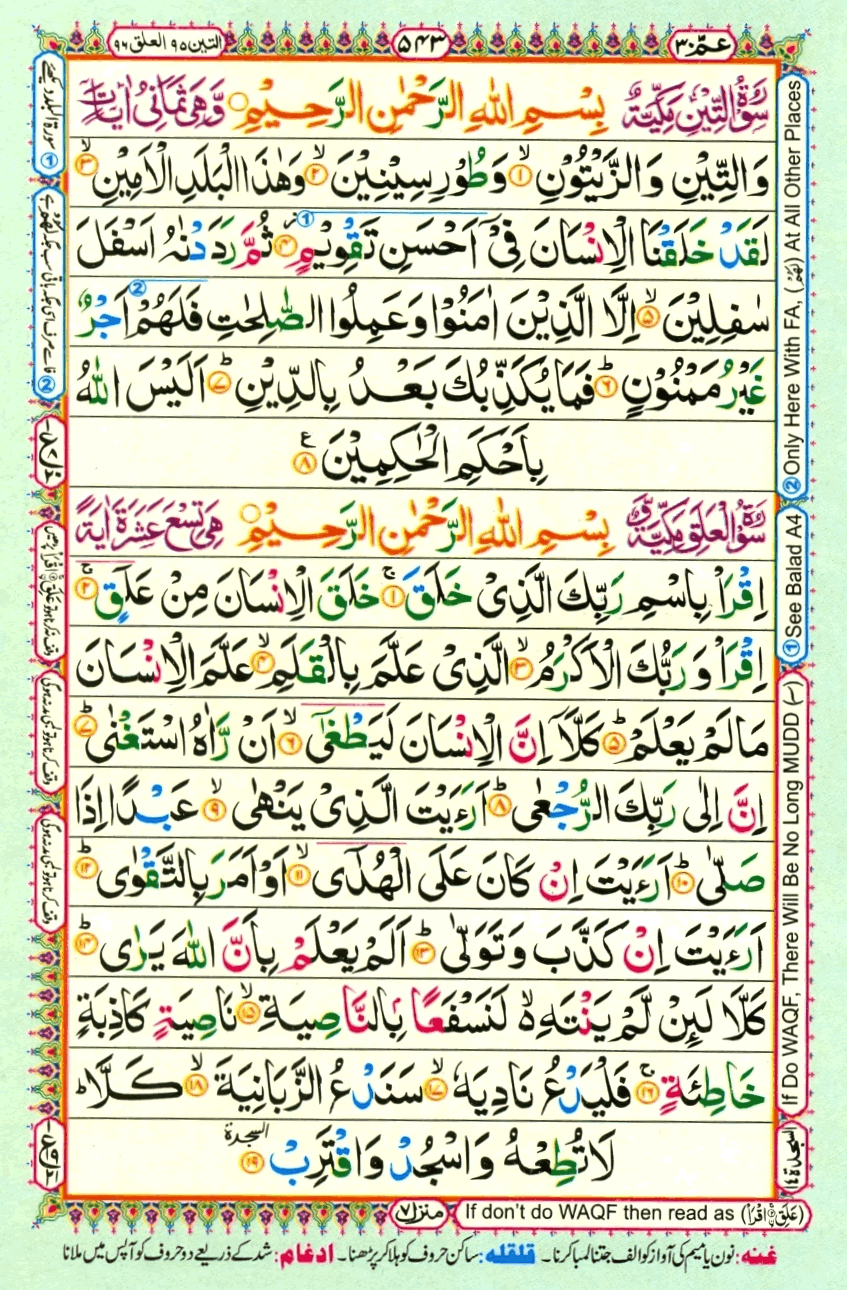 عمّ ۳۰
۵۴۳
التين ۹۵ العلق ۹۶
سُوْرَةُ التِّيْنِ مَكِّيَّةٌ بِسْمِ اللهِ الرَّحْمٰنِ الرَّحِيْمِ وَّهِيَ ثَمَانِيْ اٰيَاتٍ
وَالتِّيْنِ وَالزَّيْتُوْنِ ۙ۱ وَطُوْرِ سِيْنِيْنَ ۙ۲ وَهٰذَا الْبَلَدِ الْاَمِيْنِ ۙ۳
لَقَدْ خَلَقْنَا الْاِنْسَانَ فِيْۤ اَحْسَنِ تَقْوِيْمٍ ۴ ثُمَّ رَدَدْنٰهُ اَسْفَلَ
سٰفِلِيْنَ ۙ۵ اِلَّا الَّذِيْنَ اٰمَنُوْا وَعَمِلُوا الصّٰلِحٰتِ فَلَهُمْ اَجْرٌ
غَيْرُ مَمْنُوْنٍ ؕ۶ فَمَا يُكَذِّبُكَ بَعْدُ بِالدِّيْنِ ؕ۷ اَلَيْسَ اللهُ
بِاَحْكَمِ الْحٰكِمِيْنَ ۸ ع
سُوْرَةُ الْعَلَقِ مَكِّيَّةٌ وَّ بِسْمِ اللهِ الرَّحْمٰنِ الرَّحِيْمِ هِيَ تِسْعَ عَشَرَةَ اٰيَةً
اِقْرَاْ بِاسْمِ رَبِّكَ الَّذِيْ خَلَقَ ۚ۱ خَلَقَ الْاِنْسَانَ مِنْ عَلَقٍ ۚ۲
اِقْرَاْ وَرَبُّكَ الْاَكْرَمُ ۙ۳ الَّذِيْ عَلَّمَ بِالْقَلَمِ ۙ۴ عَلَّمَ الْاِنْسَانَ
مَا لَمْ يَعْلَمْ ؕ۵ كَلَّاۤ اِنَّ الْاِنْسَانَ لَيَطْغٰۤى ۙ۶ اَنْ رَّاٰهُ اسْتَغْنٰى ؕ۷
اِنَّ اِلٰى رَبِّكَ الرُّجْعٰى ؕ۸ اَرَءَيْتَ الَّذِيْ يَنْهٰى ۙ۹ عَبْدًا اِذَا
صَلّٰى ؕ۱۰ اَرَءَيْتَ اِنْ كَانَ عَلَى الْهُدٰۤى ۙ۱۱ اَوْ اَمَرَ بِالتَّقْوٰى ؕ۱۲
اَرَءَيْتَ اِنْ كَذَّبَ وَتَوَلّٰى ؕ۱۳ اَلَمْ يَعْلَمْ بِاَنَّ اللهَ يَرٰى ؕ۱۴
كَلَّا لَئِنْ لَّمْ يَنْتَهِ ۙ۬ لَنَسْفَعًا بِالنَّاصِيَةِ ۙ۱۵ نَاصِيَةٍ كَاذِبَةٍ
خَاطِئَةٍ ۚ۱۶ فَلْيَدْعُ نَادِيَهٗ ۙ۱۷ سَنَدْعُ الزَّبَانِيَةَ ۙ۱۸ كَلَّا ؕ
لَا تُطِعْهُ وَاسْجُدْ وَاقْتَرِبْ ۱۹ السجدة
② Only Here With FA, (لَهُمْ) At All Other Places
① See Balad A4
If Do WAQF, There Will Be No Long MUDD (~)
السجدة ۱۴
① سورۃ البلد دیکھئے
منزل ۷
If don't do WAQF then read as (عَلَقٍ اقْرَاْ)
غنہ: نون یا میم کی آواز کو الف جتنا لمبا کرنا۔ قلقلہ: ساکن حروف کو ہلا کر پڑھنا۔ ادغام: شد کے ذریعے دو حروف کو آپس میں ملانا